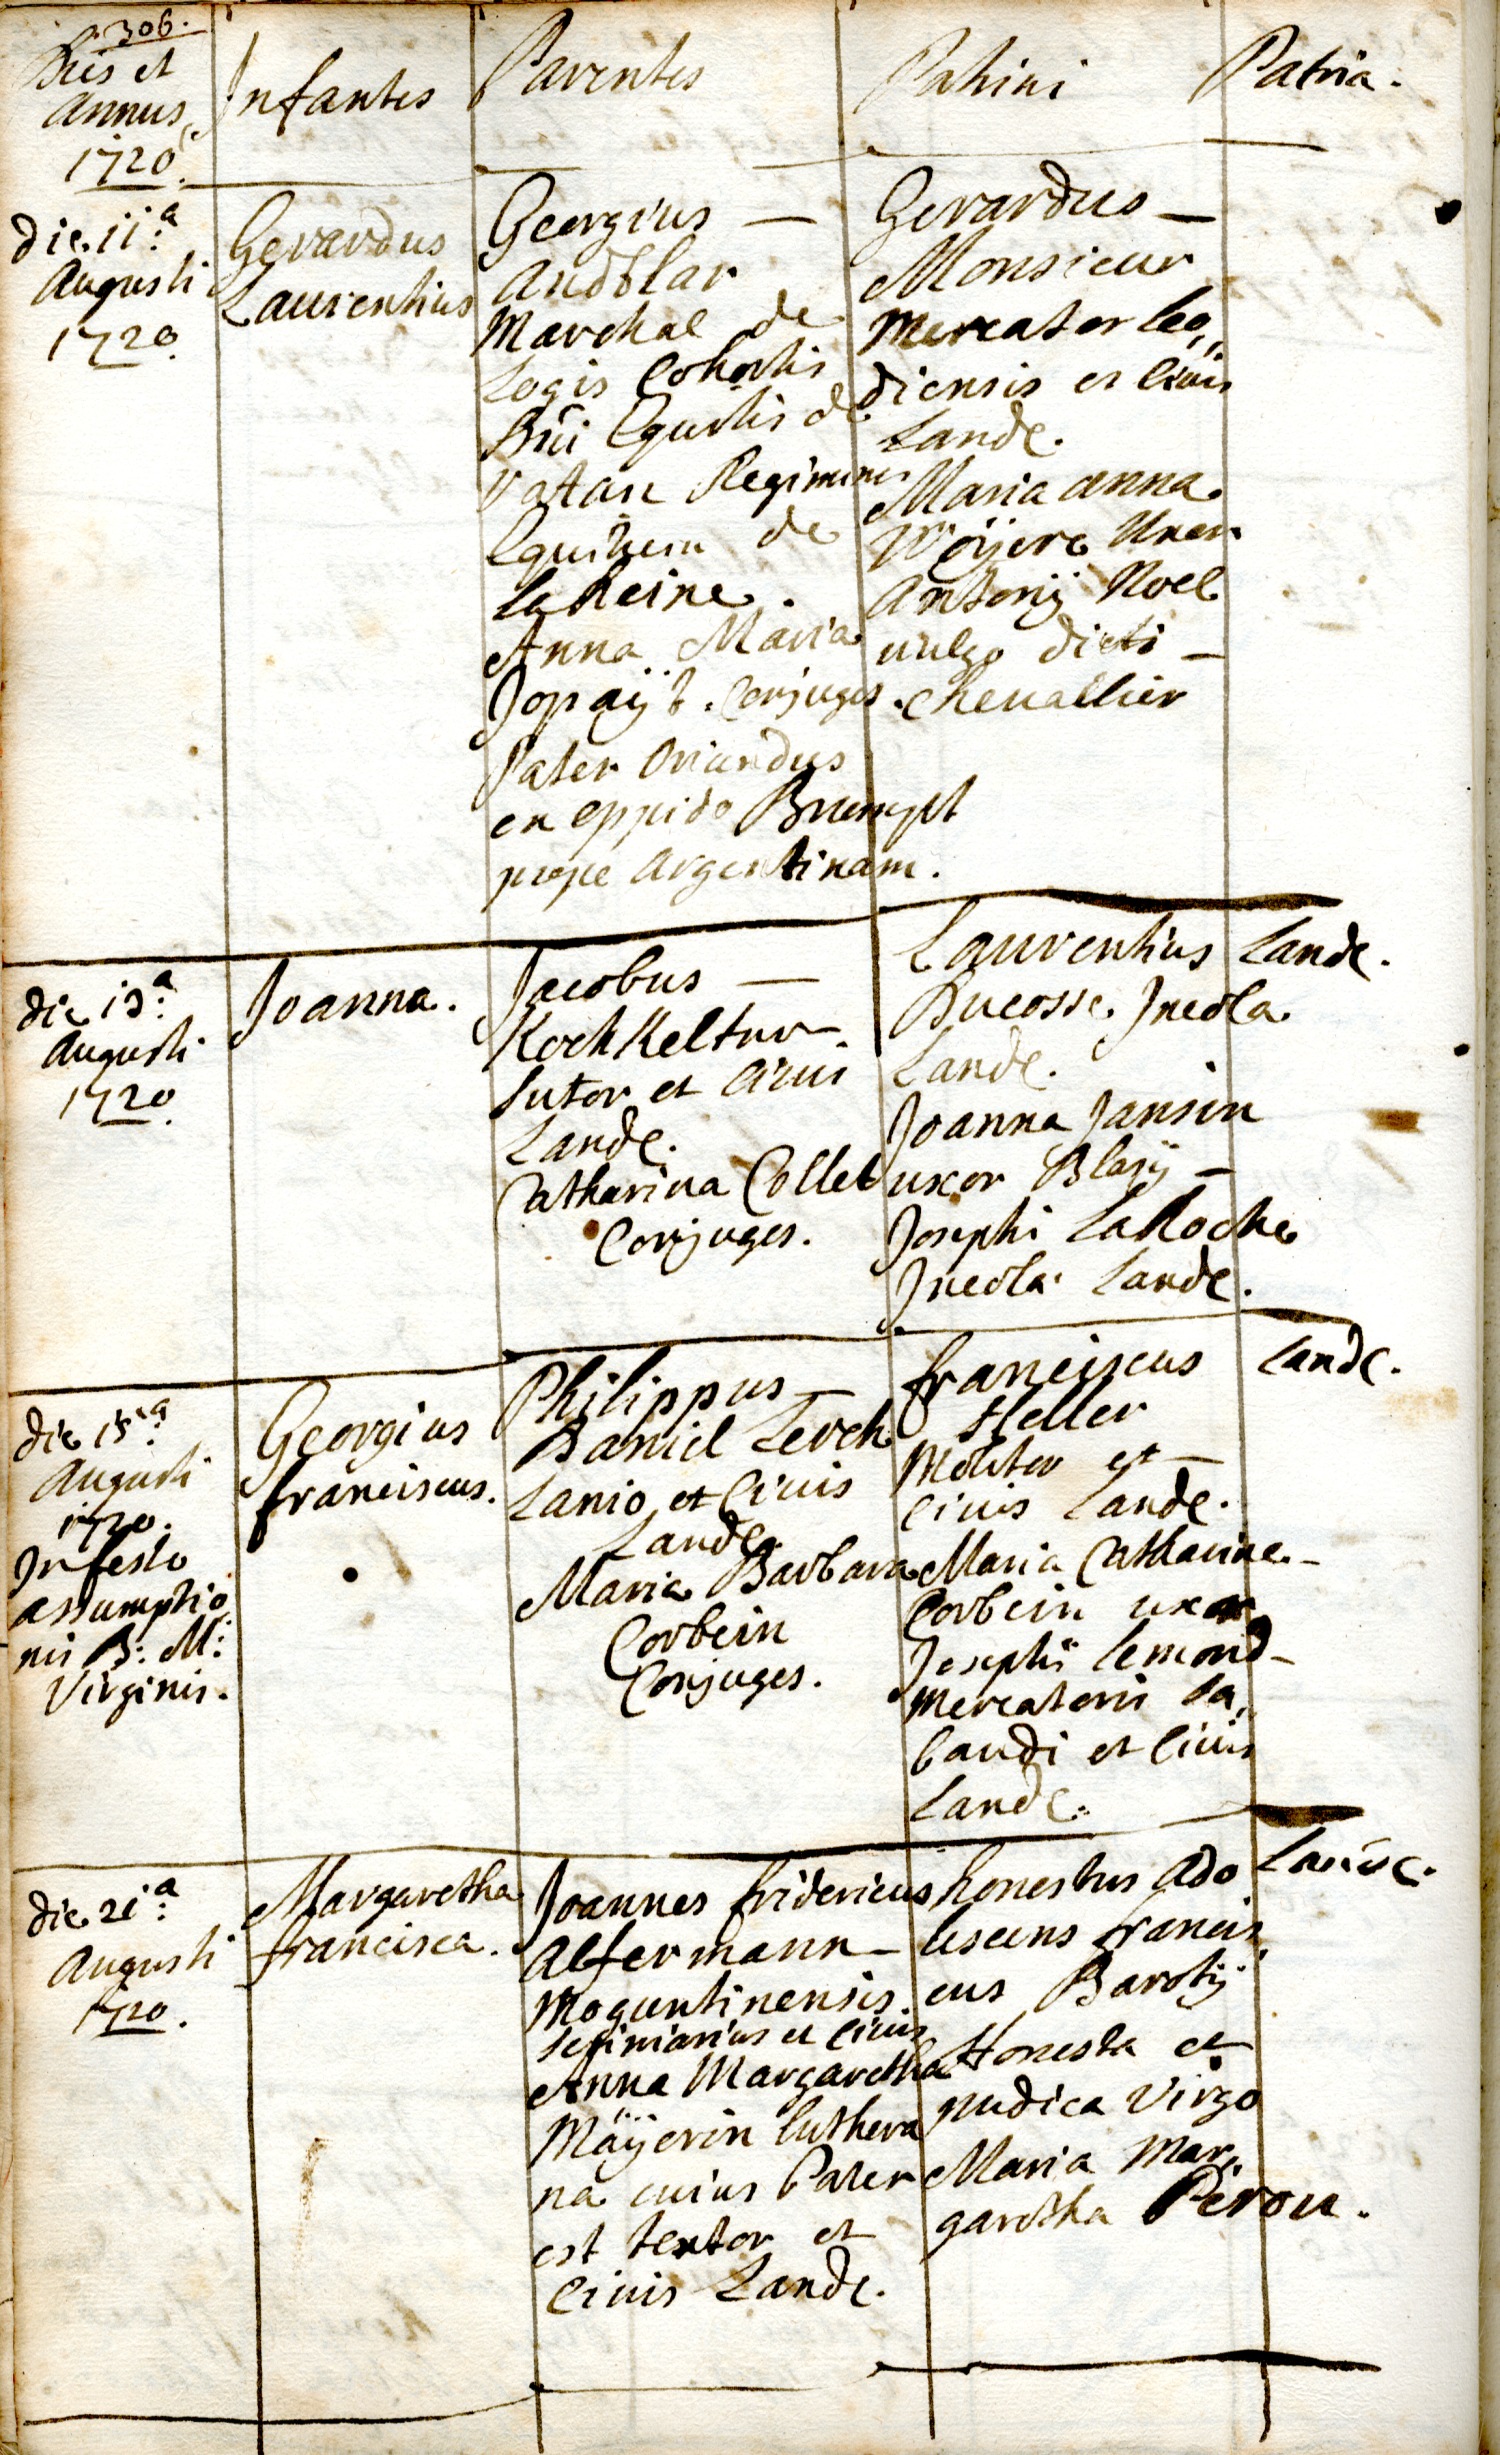 306.
Dies et
Annus
1720.
Infantes
Parentes
Patrini
Patria.
die 11.ª
Augusti
1720
Gerardus
Laurentius
Georgius —
Andblar
Marchal de
Logis Cohortis
Dni Equitis de
Vatan Regiminis
Equitum de
la Reine.
Anna Maria
Conjuges.
Pater Oriundus
ex oppido Brumpt
prope Argentinam.
Gerardus —
Monsieur
Mercator leo„
diensis et Civis
Landę.
Maria Anna
Wöÿere Uxor
Antonÿ Noel
vulgo dicti —
Chevallier
die 13.ª
Augusti
1720
Joanna.
Jacobus —
Koch Keltur
Sutor et Civis
Landę.
Catharina Collet
Conjuges.
Laurentius
Ducosse. Incola
Landę.
Joanna Jansin
uxor Blasÿ —
Josephi LaRoche
Incola Landę.
Landę.
die 15.ª
Augusti
1720.
In festo
assumptio
nis B: M:
Virginis.
Georgius
franciscus.
Philippus —
Daniel Lerch
Lanio et Civis
Landę.
Maria Barbara
Corbein
Conjuges.
franciscus
Heller
Molitor et —
Civis Landę.
Maria Catharina —
Corbein uxor
Josephi Lemond —
Mercatoris Sa„
baudi et Civis
Landę.
Landę.
die 21.ª
Augusti
1720.
Margaretha
francisca.
Joannes fridericus
Alfermann —
Moguntinensis.
Scriniarius et Civis
Anna Margaretha
Mäÿerin luthera
na cuius Pater
est textor et
Civis Landę.
honestus Ado
lescens francis„
cus Barotÿ
Honesta et
pudica Virgo
Maria Mar„
garetha Pirou.
Landę.